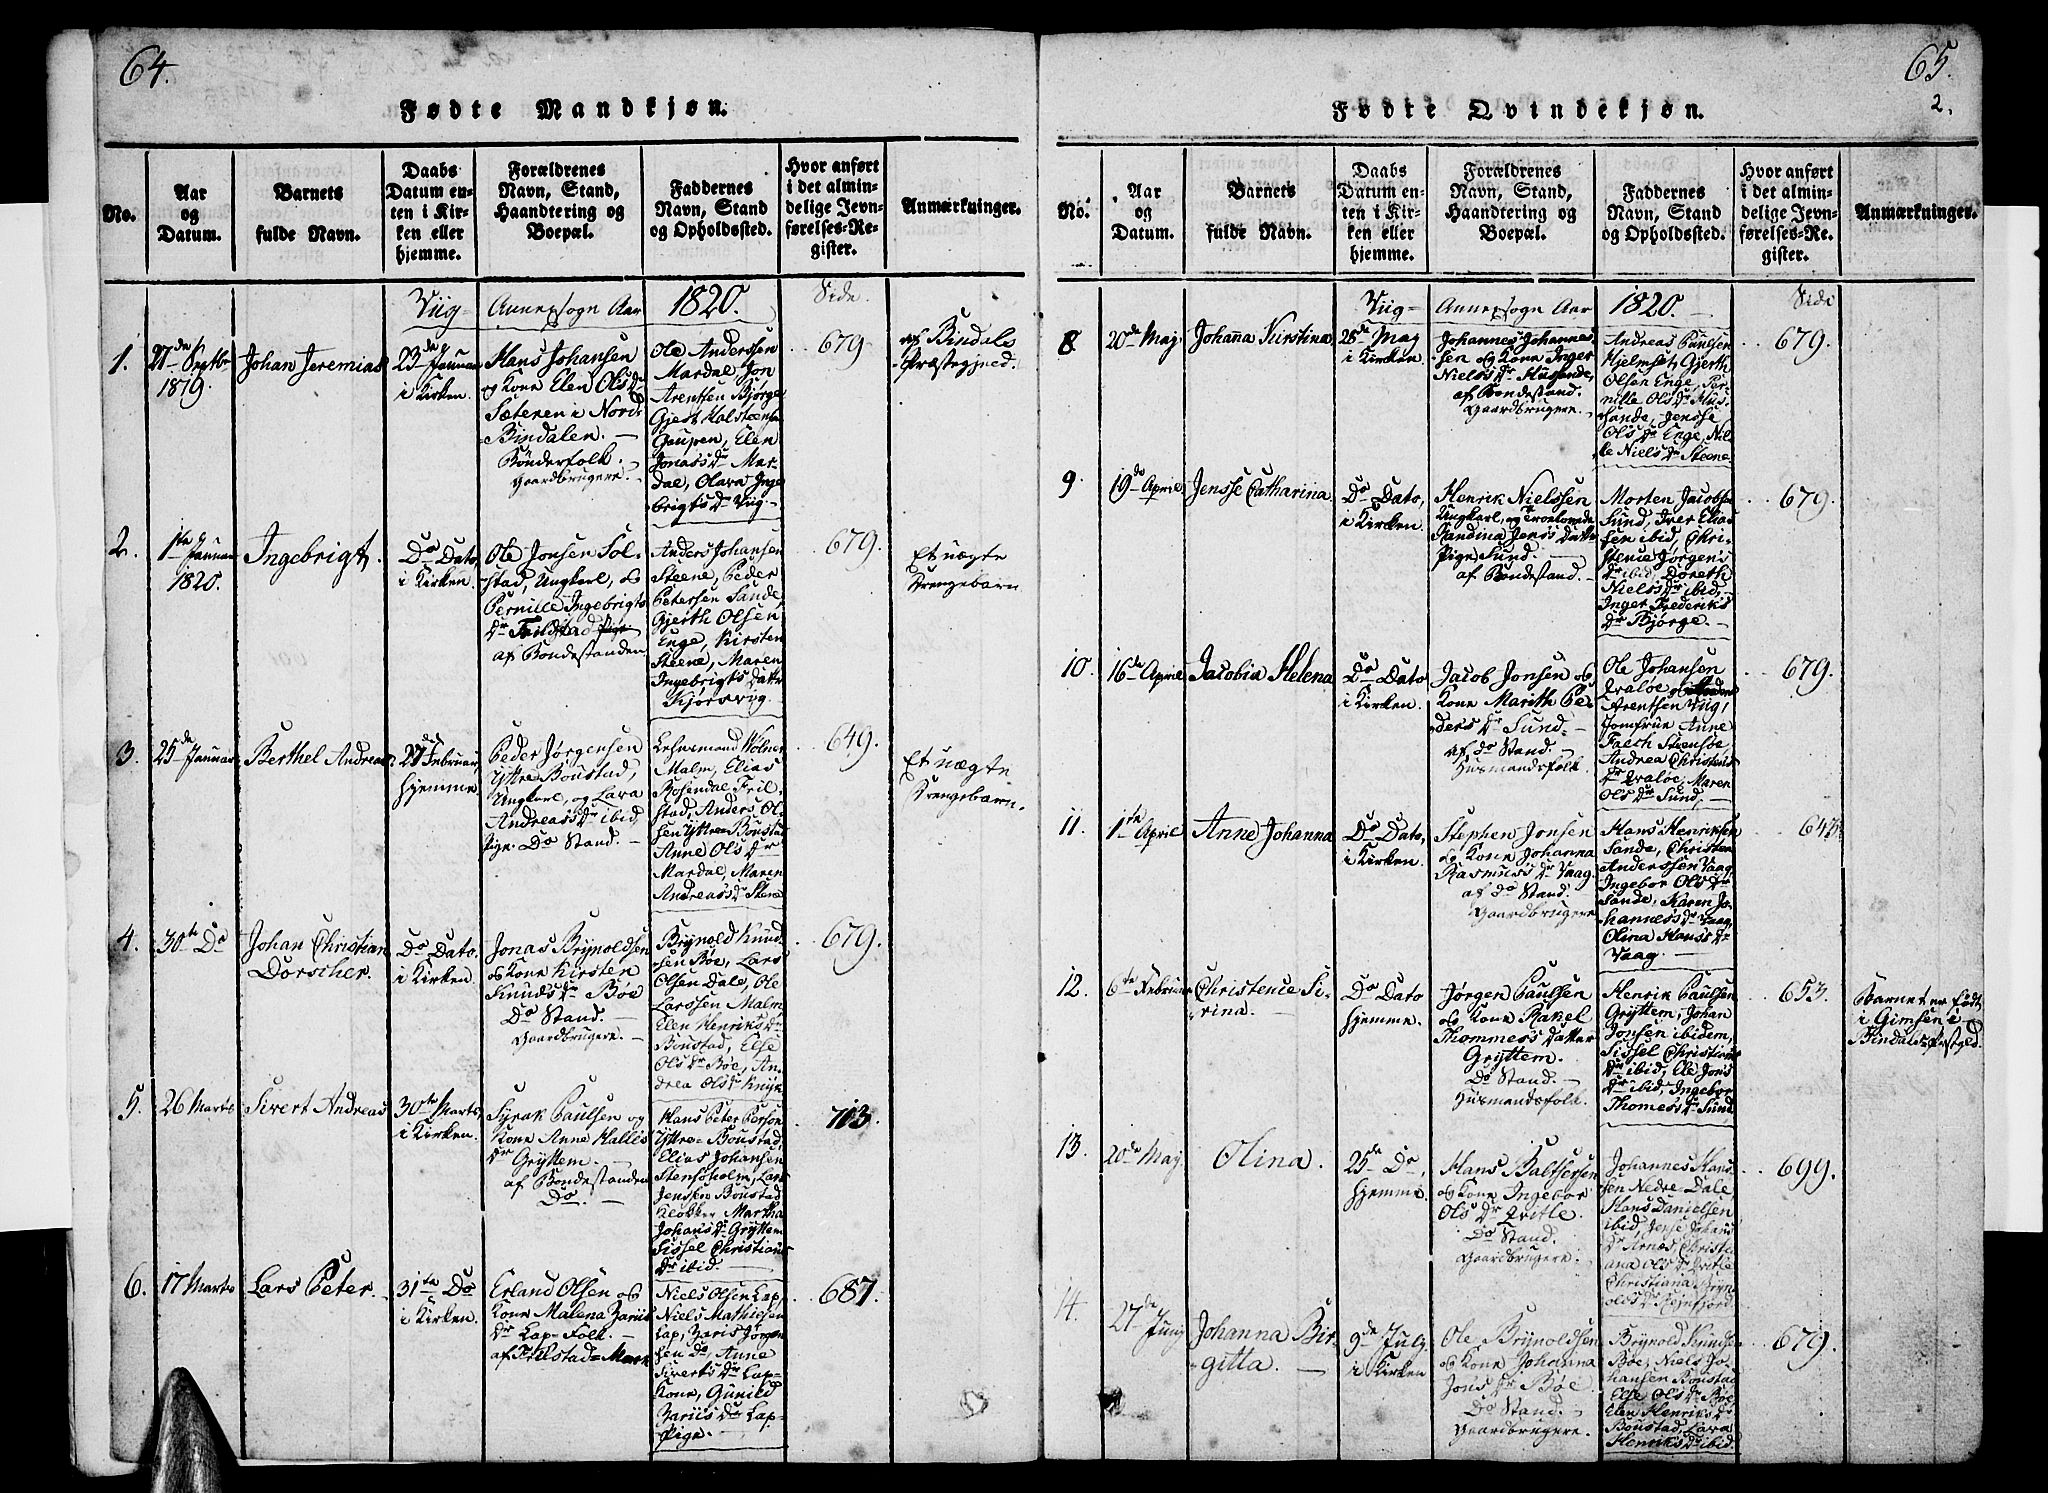 64.
Fødte Mandkjøn.
No.
Aar
og
Datum.
Barnets
fulde Navn.
Daabs
Datum en-
ten i Kir-
ken eller
hjemme.
Forældrenes
Navn, Stand,
Haandtering og
Boepæl.
Faddernes
Navn, Stand
og Opholdssted.
Hvor anført
i det almin-
delige Jevn-
førelses-Re-
gister.
Anmærkninger.
Viig-
Annexsogn Aar
1820.
Side.
1.
21de Septbr
1819.
Johan Jeremias
23de Januar
i Kirken.
Hans Johansen
og Kone Elen Olsdr
Sæteren i Nord-
Bindalen.
Bønderfolk.
Gaardbrugere.
Ole Anderssen
Mardal, Jon
Arentsen Bjørge
Gjert Halstensen
Gaupen, Elen
Jonas's Dr Mar-
dal, Olava Inge
brigts Dr Viig
679
af Bindals
Præstegjeld.
2.
1te Januar
1820.
Ingebrigt.
Do Dato
i Kirken.
Ole Jonsen Sol-
stad, Ungkarl, og
Pernille Ingebrigts
Dr
af Bondestanden
Anders Johansen
Steene, Peder
Petersen Sande,
Gjerth Olsen
Enge, Kirsten
Steene, Maren
Ingebrigts Datter
Kjørsviig.
679.
Et uægte
Drengebarn
3.
25de Januar
Berthel Andreas
27de Februar,
hjemme.
Peder Jørgensen
Yttre Boustad,
Ungkarl, og Lava
Andreas's Dr ibid,
Pige. Do Stand.
Malm, Elias
Rosendal Fril-
stad, Anders Ol-
sen Yttre Boustad
Anne Ols Dr
Mardal, Maren
Andreas's Dr Steene
649.
Et uægte
Drengebarn.
4.
30te Do
Johan Christian
Dorscher.
Do Dato.
i Kirken.
Jonas Brynoldsen
og Kone Kirsten
Knuds Dr Bøe
Do Stand.
Gaardbrugere.
Brynold Knud-
sen Bøe, Lars
Olsen Dale, Ole
Larssen Malm
Elen Henriks Dr
Boustad, Else
Ols Dr Bøe, An-
drea Ols Dr
679.
5.
26 Marts
Sivert Andreas
30te Marts,
i Kirken.
Syrak Paulsen og
Kone Anne Hallis
Dr Gryttem.
af Bondestanden
Do.
Hans Peter Person
Yttre Boustad,
Elias Johansen
Stensholm, Lars
Jenssen Boustad
Klokker Martha
Johans Dr Gryttem
Sissel Christians
Dr ibid.
703.
6.
17 Marts
Lars Peter.
31te Do
i Kirken.
Erland Olsen og
Kone Malena Zariis
Dr Lap-Folk.
af Frilstad-Mark
Niels Olsen Lap,
Niels Mathiesen
Lap, Zaris Jørgen
sen Do, Anne
Siverts Dr Lap-
Kone, Gunild
Zariis Dr Lap-
Pige.
687.
65.
2.
Fødte Qvindekjøn.
No.
Aar
og
Datum.
Barnets
fulde Navn.
Daabs
Datum en-
ten i Kir-
ken eller
hjemme.
Forældrenes
Navn, Stand,
Haandtering og
Boepæl.
Faddernes
Navn, Stand
og Opholdssted.
Hvor anført
i det almin-
delige Jevn-
førelses-Re-
gister.
Anmærkninger.
Viig-
Annexsogn Aar
1820.
Side
8.
20de Maj
Johanna Kirstina
28de May
i Kirken.
Johannes Johannes
sen og Kone Inger
Niels's Dr Hussande,
af Bondestand.
Gaardbrugere.
Andreas Paulsen
Hjelmset, Gjerth
Olsen Enge, Per-
nille Ols Dr Hus-
sande, Jensse
Ols Dr Enge, Nil-
le Niels Dr Steene
679.
9.
19de April
Jensse Catharina.
Do Dato,
i Kirken.
Henrik Nielssen
Ungkarl, og Trolovede
Randina Jens's Datter
Pige, Sund.
af Bondestand.
Morten Jacobsen
Sund, Iver Elias
sen ibid, Chri-
stence Jørgens
Dr ibid, Doreth
Niels Dr ibid,
Inger Frederiks
Dr Bjørge.
679.
10.
16de April
Jacobia Helena
Do Dato
i Kirken.
Jacob Jonsen og
Kone Marith Pe-
ders Dr Sund.
af do Stand.
Husmandsfolk.
Ole Johansen
Qvaløe
Arentsen Viig,
Jomfrue Anne
Falch Steensøe,
Andrea Christens
Dr Qvaløe, Maren
Ols Dr Sund,
679.
11.
1te April
Anne Johanna
Do Dato,
i Kirken.
Stephen Jonsen
og Kone Johanna
Rasmus's Dr Vaag.
af do Stand.
Gaardbrugere
Hans Henriksen
Sande, Christen
Anderssen Vaag,
Ingebor Ols Dr
Sande, Karen Jo-
hannes's Dr Vaag,
Olina Hans's Dr
Vaag.
12.
6te Februar
Christence Si-
rina.
Do Dato
hjemme.
Jørgen Paulsen
og Kone Rakel
Thommes's Datter
Gryttem.
Do Stand.
Husmandsfolk.
Henrik Paulsen
Gryttem, Johan
Jonsen ibidem,
Sissel Christians
Dr ibid, Ele Jons
Dr ibid, Ingebor
Thomes's Dr Sund
653.
Barnet er født
i Gimsen i
Bindals Præstegjeld.
13.
20de May.
Olina.
25de Do,
hjemme.
Hans Baltsersen
og Kone Ingebor
Ols Dr Qvitle.
Do Stand.
Gaardbrugere.
Johannes Hans-
sen Nedre-Dale,
Hans Danielsen
ibid, Jense Johans
Dr Arnes, Christi-
ana Ols Dr Qvitle
Christiana Bryn
olds Dr Reinsfjord.
699.
14.
27de Juny
Johanna Bir-
gitta.
9de July
i Kirken
Ole Brynoldsen
og Kone Johanna
Jons Dr Bøe
Do Stand.
Gaardbrugere.
Brynold Knudsen
Bøe, Niels Jo-
hansen Boustad
Else Ols Dr Bøe
Elen Henriks Dr
Boustad, Lava
Henriks Dr ibid.
679.